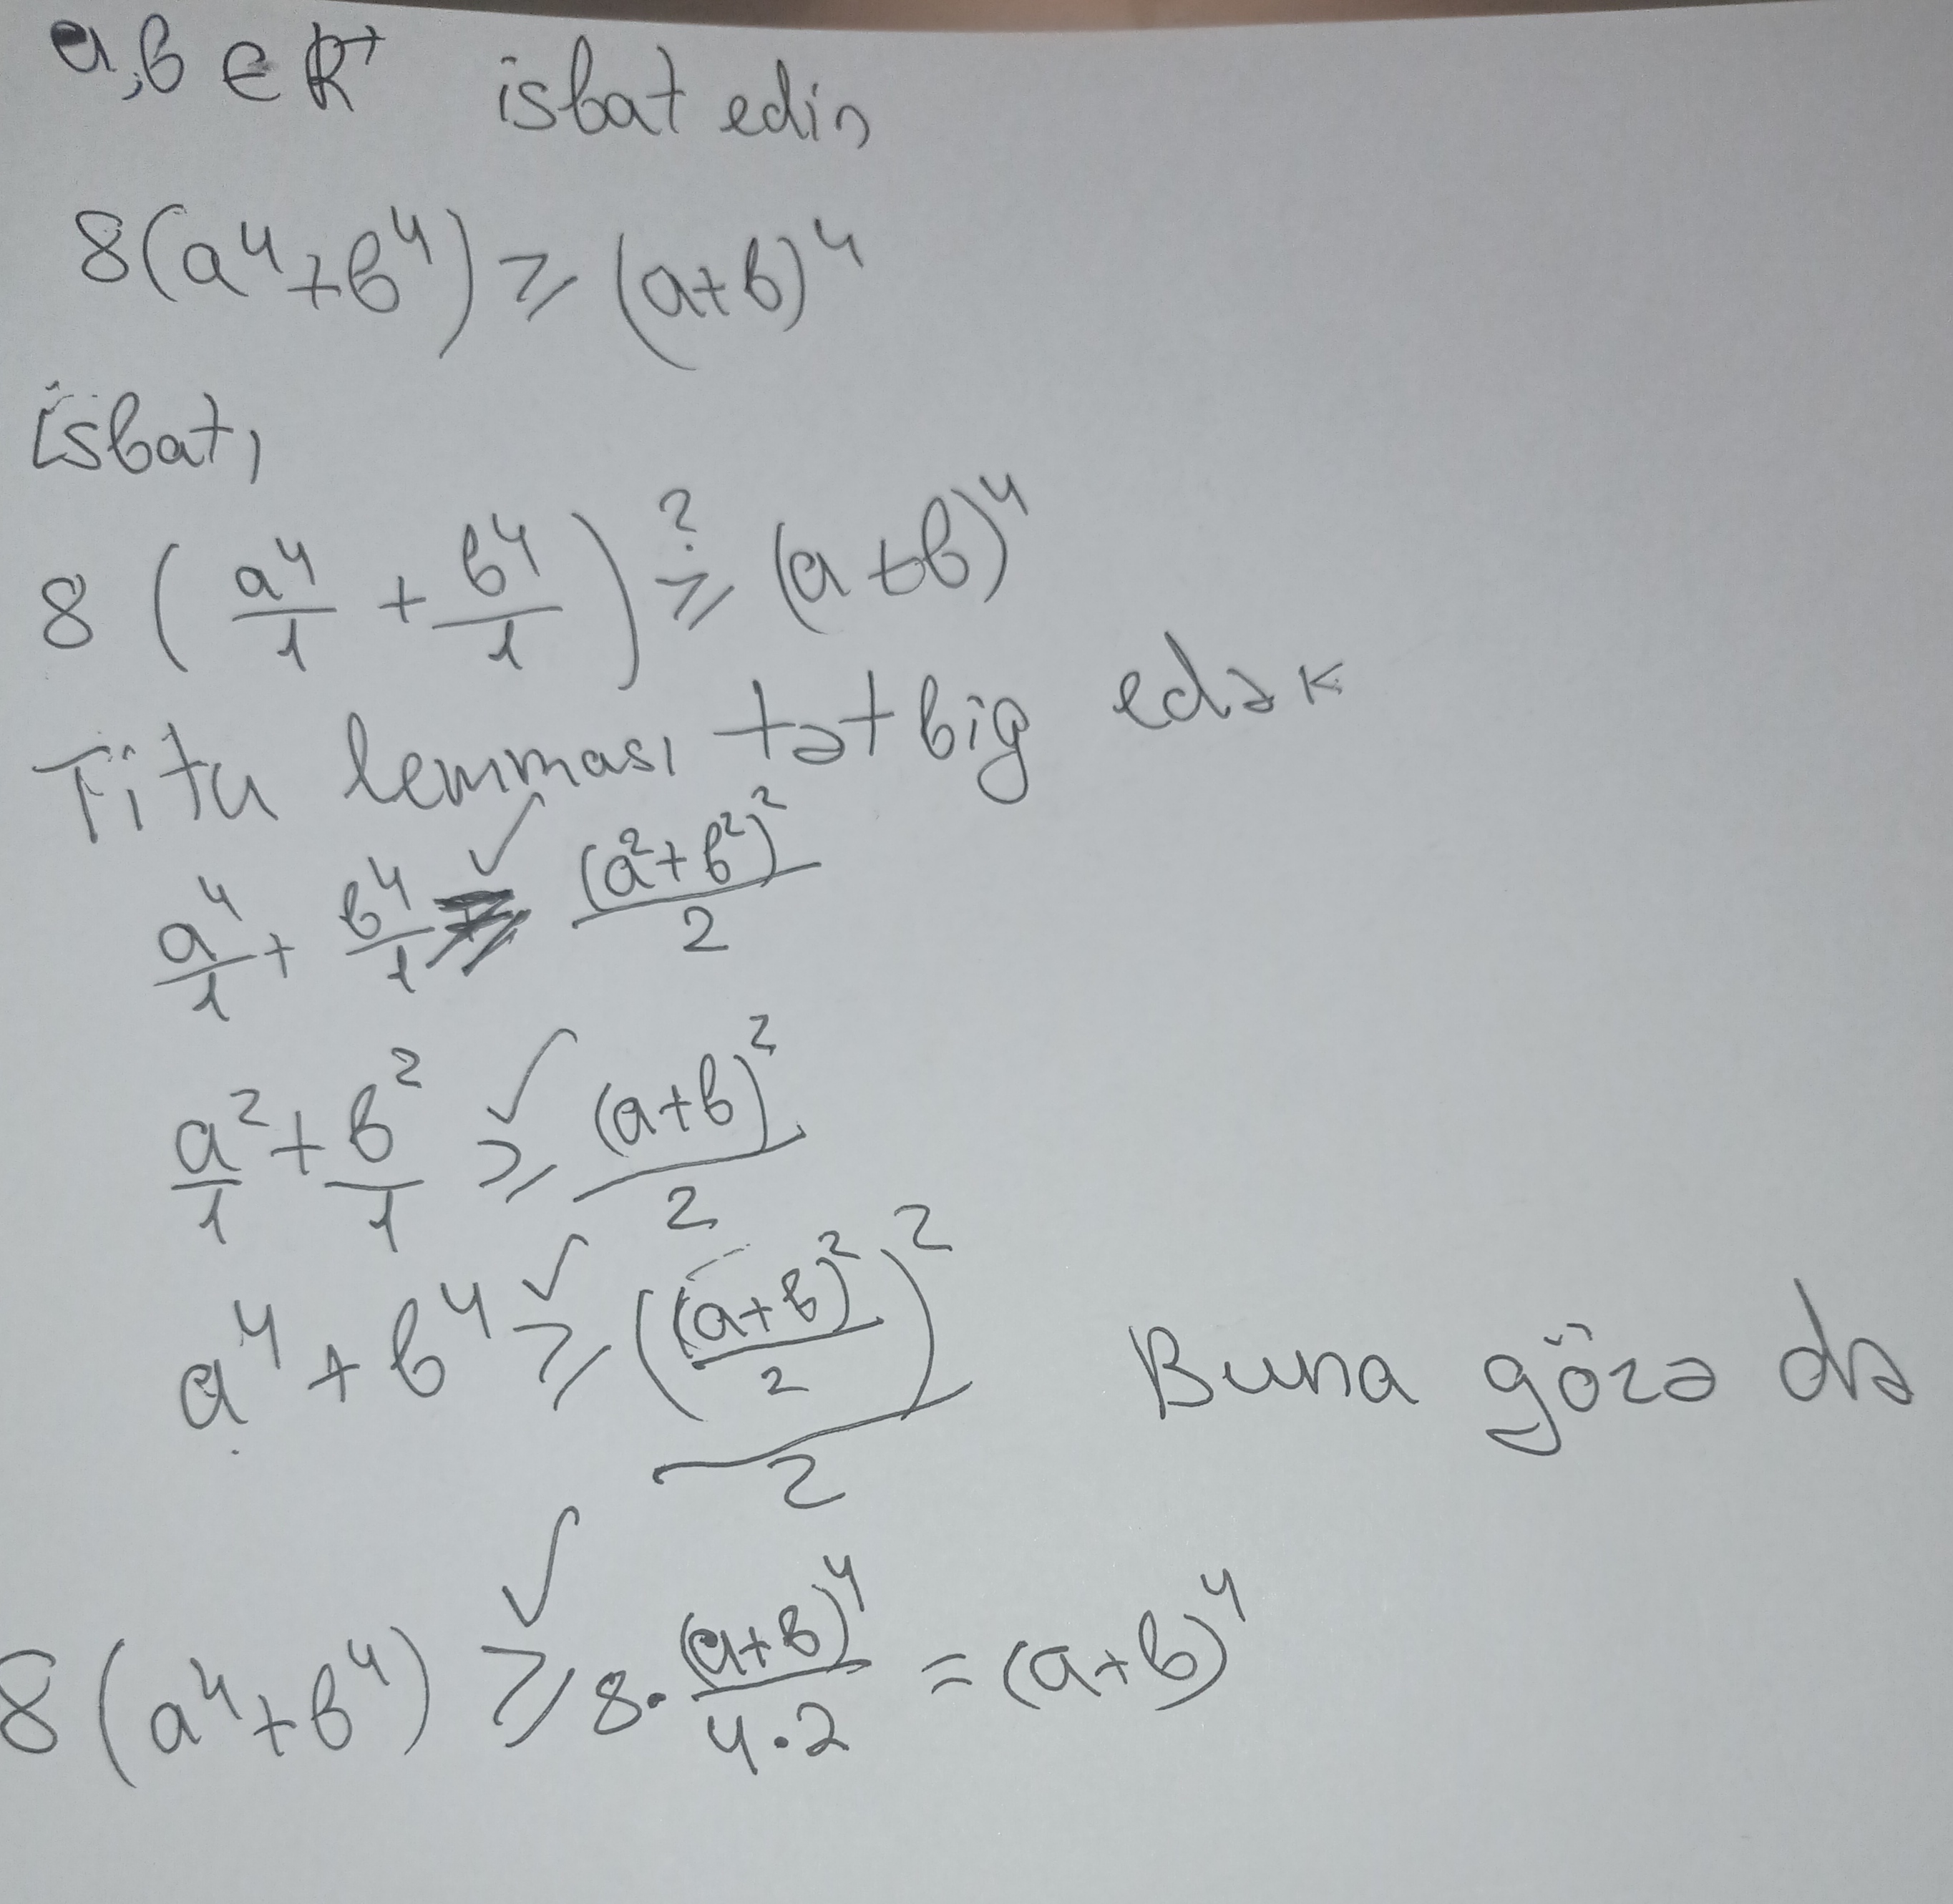 a,b ∈ R⁺ isbat edin
8(a⁴+b⁴) ≥ (a+b)⁴
İsbat,
8 ( a⁴/1 + b⁴/1 ) ≥? (a+b)⁴
Titu lemması tətbig edək
a⁴/1 + b⁴/1 ≥ ✓ (a²+b²)²/2
a²/1 + b²/1 ≥ ✓ (a+b)²/2
a⁴ + b⁴ ≥ ✓ ((a+b)²/2)²/2 Buna görə də
8(a⁴+b⁴) ≥ ✓ 8·(a+b)⁴/4·2 = (a+b)⁴